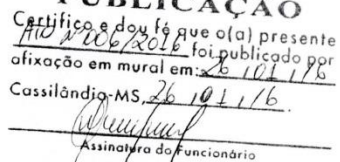 PUBLICAÇÃO
Certifico e dou fé que o(a) presente
Ato nº 006/2016 foi publicado por
afixação em mural em: 26/01/16
Cassilândia-MS, 26/01/16
Assinatura do Funcionário